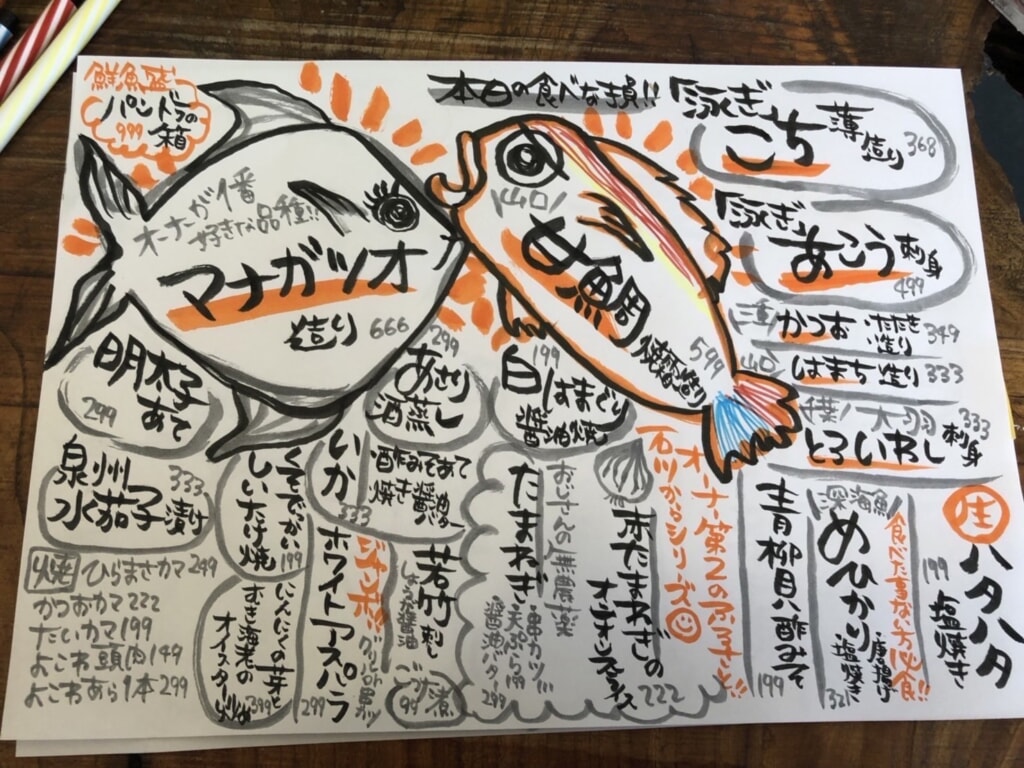 本日の食べな損!!
泳ぎ
こち
薄造り
368
泳ぎ
あこう
刺身
499
かつお
たたき
造り
349
はまち造り
333
大羽
とろいわし
刺身
333
鮮魚盛
パンドラの
箱
999
オーナーが1番
好きな品種!!
マナガツオ
造り
666
山口
女鯛
599
明太子
あて
299
あさり
酒蒸し
299
白はまぐり
醤油焼
199
泉州
水茄子漬け
333
いか
333
しいたけ焼
199
焼
ひらまさカマ 249
かつおカマ 222
たいカマ 199
よこわ頭肉 149
よこわあら1本 299
にんにくの芽と
むき海老の
オイスター炒め
399
ホワイトアスパラ
299
若竹
刺し
たまねぎ
おじさんの無農薬
串カツ
天ぷら
199
醤油バター
299
赤たまねぎの
オニオンスライス
222
オーナー第2の息子チン!!
青柳貝 酢みそ
199
深海魚
めひかり
唐揚げ
塩焼き
321
食べた事ない方必食!!
生
ハタハタ
塩焼き
199